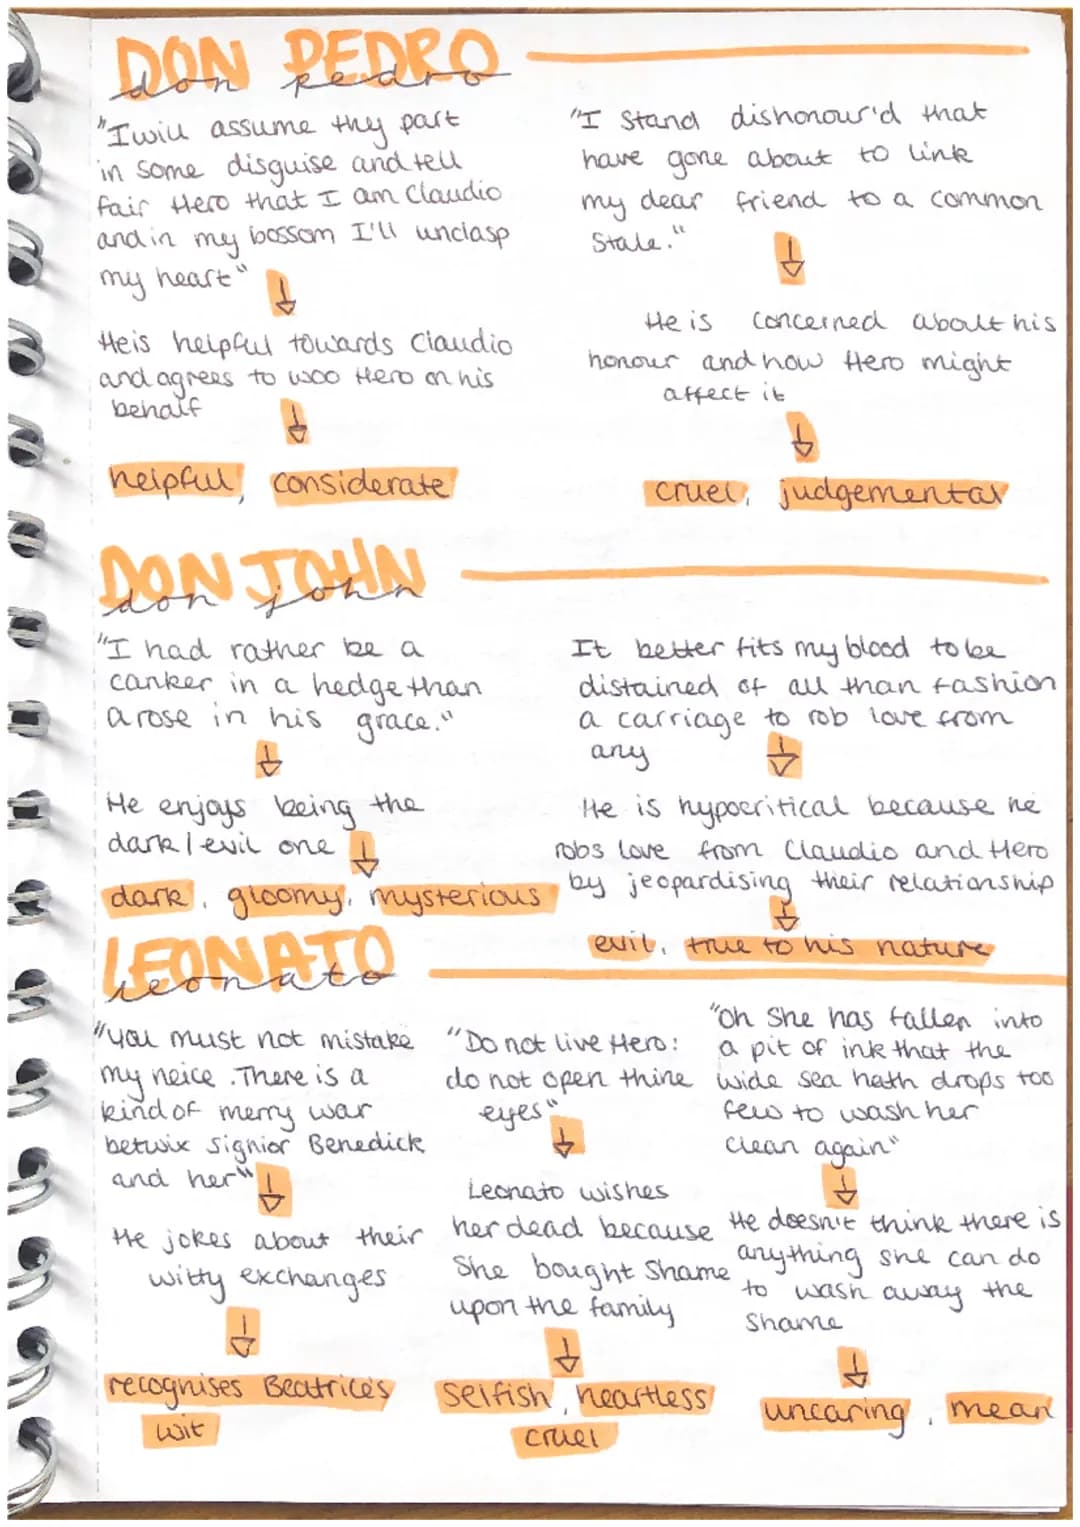 DON PEDRO
don pedro
"I will assume thy part
in some disguise and tell
fair Hero that I am Claudio
and in my bossom I'll unclasp
my heart"
He is helpful towards Claudio
and agrees to woo Hero on his
behalf
helpful, considerate
"I stand dishonour'd that
have gone about to link
my dear friend to a common
stale."
He is concerned about his
honour and how Hero might
affect it
cruel, judgemental
DON JOHN
don john
"I had rather be a
canker in a hedge than
a rose in his grace."
He enjoys being the
dark/evil one
dark, gloomy, mysterious
It better fits my blood to be
distained of all than fashion
a carriage to rob love from
any
He is hypocritical because he
robs love from Claudio and Hero
by jeopardising their relationship
evil, true to his nature
LEONATO
leonato
"you must not mistake
my neice. There is a
kind of merry war
betwix signior Benedick
and her"
He jokes about their
witty exchanges
recognises Beatrice's
wit
"Do not live Hero:
do not open thine
eyes"
Leonato wishes
her dead because
she bought shame
upon the family
selfish, heartless
cruel
"Oh she has fallen into
a pit of ink that the
wide sea hath drops too
few to wash her
clean again"
He doesn't think there is
anything she can do
to wash away the
shame
uncaring, mean